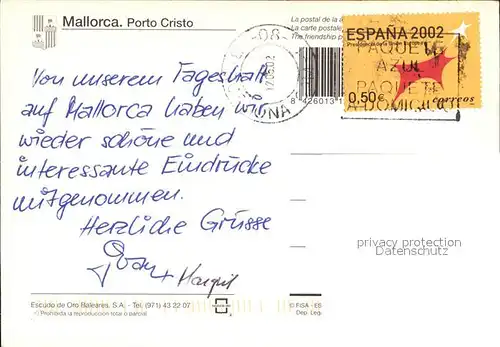 Mallorca. Porto Cristo
La postal de la a
La carte postale
The friendship p
ESPAÑA 2002
Presidencia de la
PAQUETE
AZUL
PAQUETE
A DOMICILIO
0,50€ correos
-08-
12.06.02
8 426013 1
Von unserem Tageshalt
auf Mallorca haben wir
wieder schöne und
interessante Eindrücke
mitgenommen.
Herzliche Grüsse
+ Margit
privacy protection
Datenschutz
Escudo de Oro Baleares, S.A. - Tel. (971) 43 22 07
Prohibida la reproducción total o parcial.
© FISA - ES
Dep. Leg.